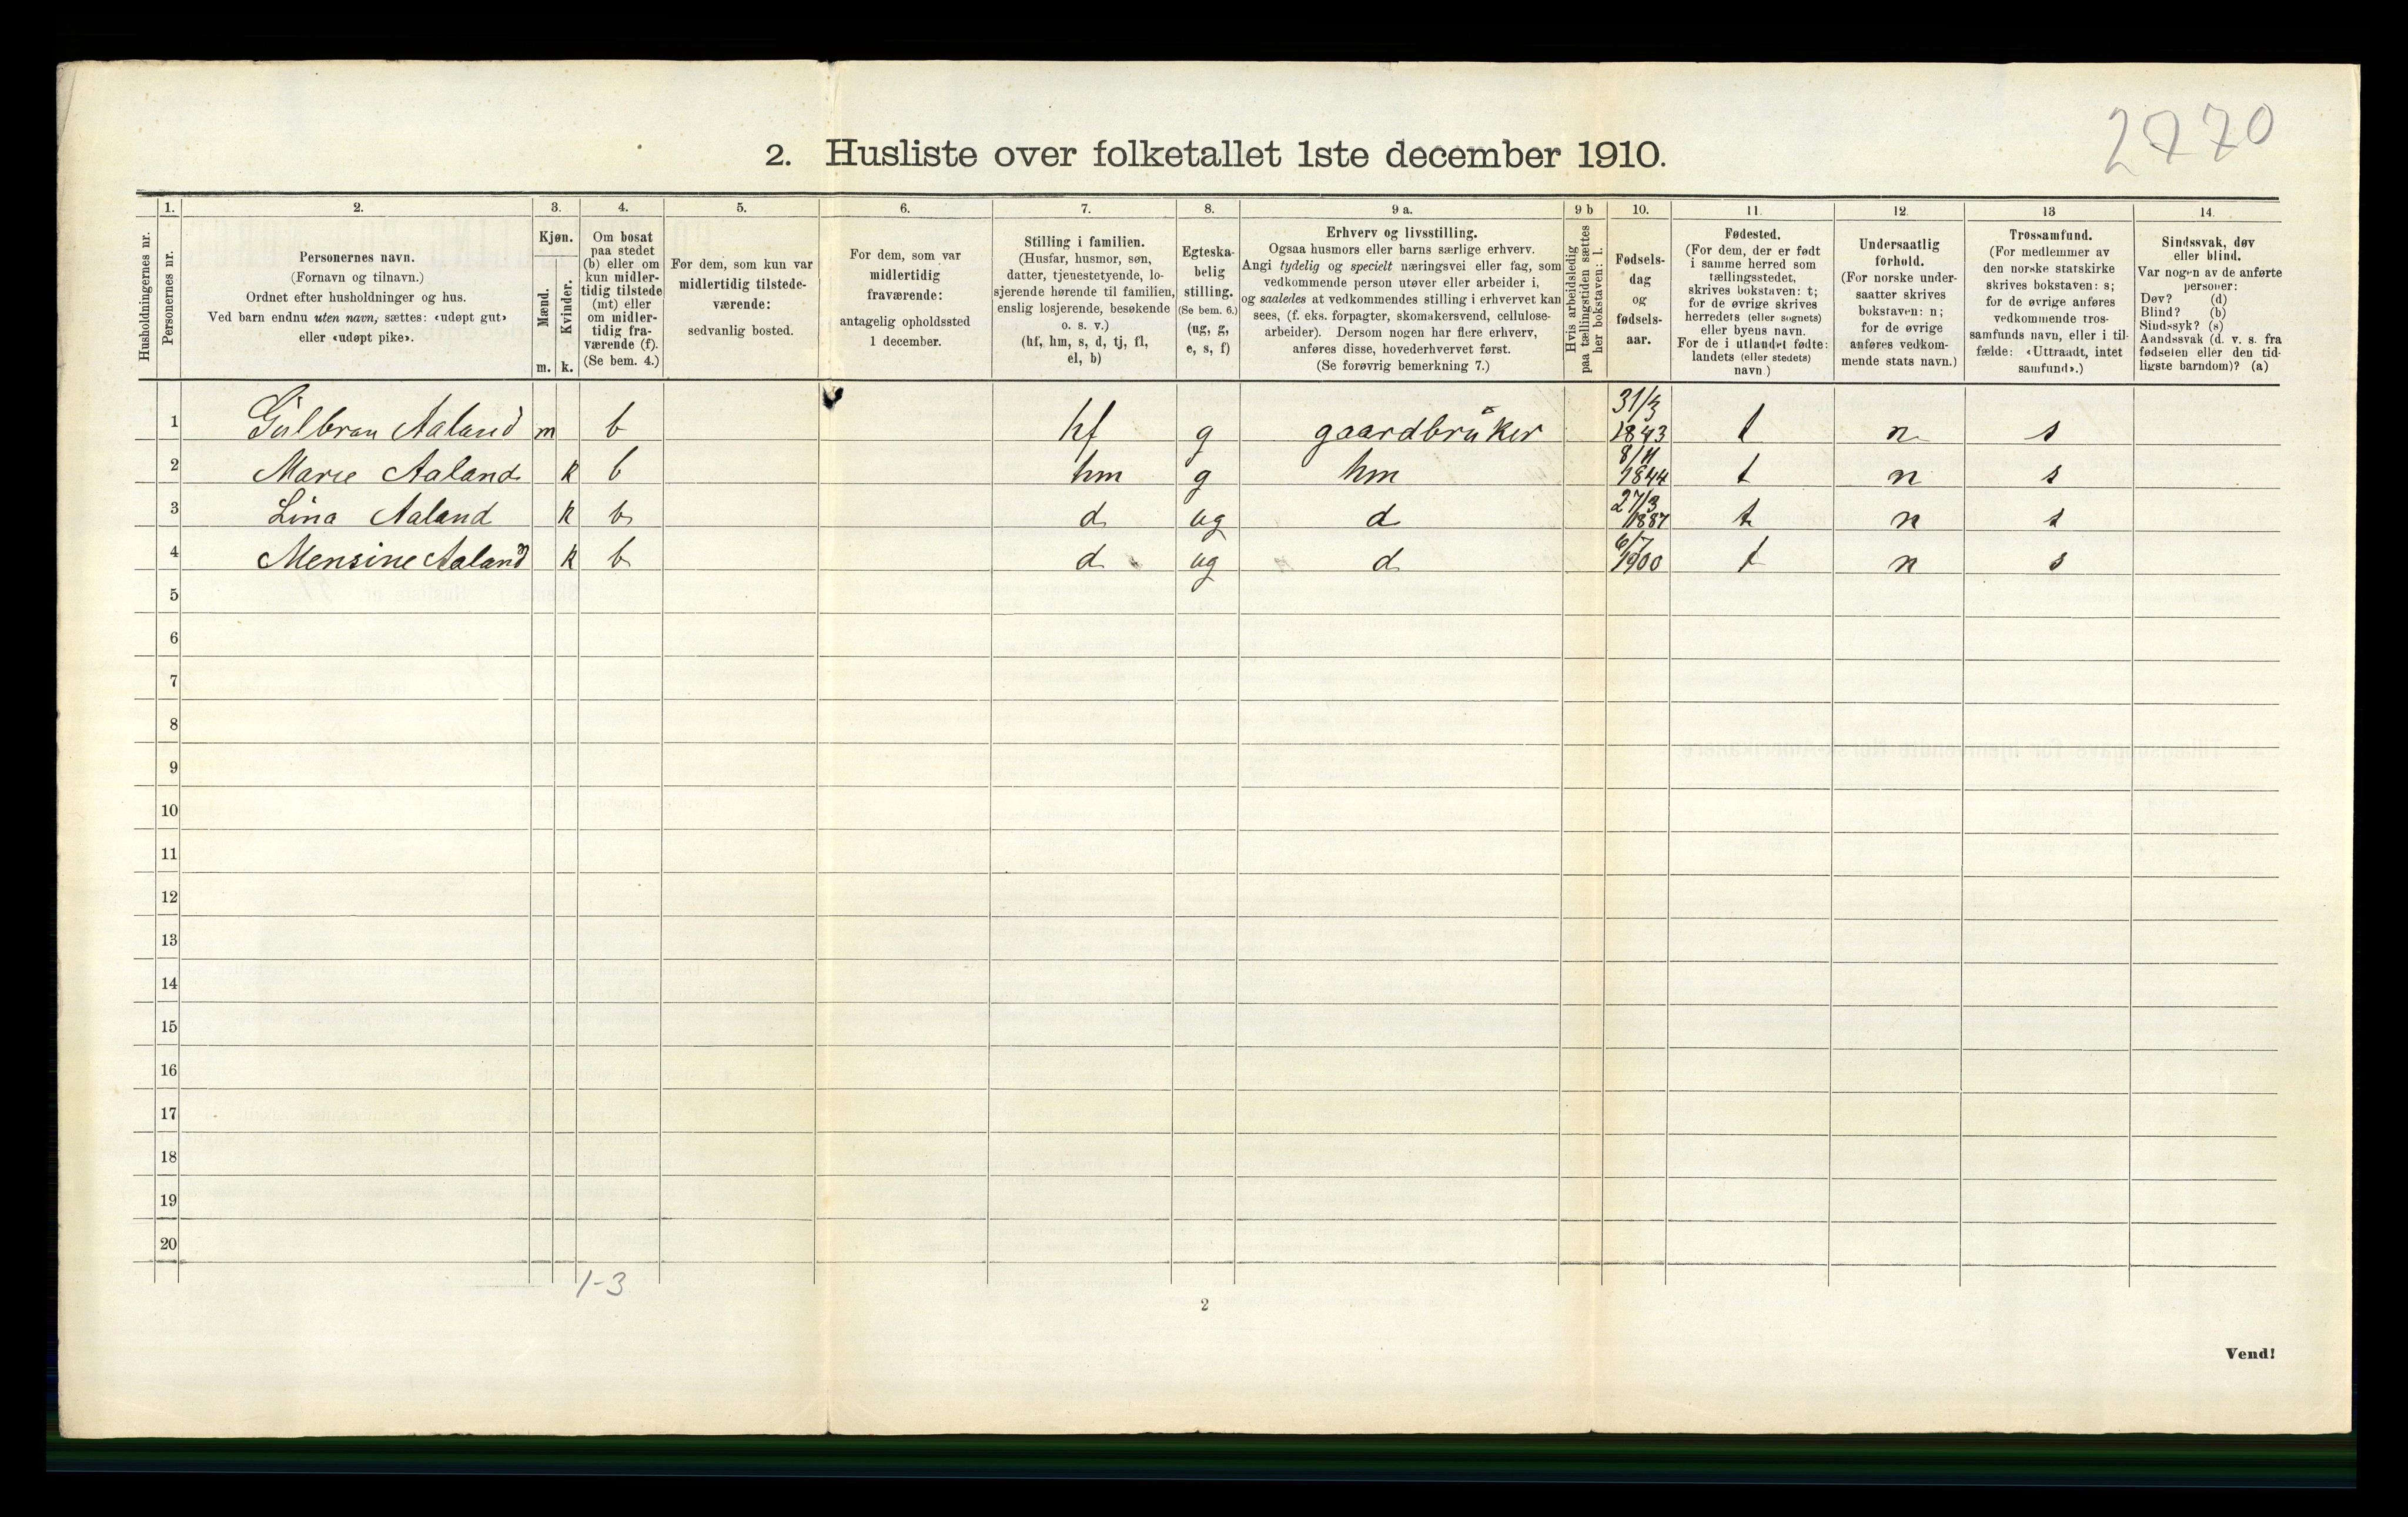 2770
2. Husliste over folketallet 1ste december 1910.
Husholdningernes nr.
1.
Personernes nr.
2.
Personernes navn.
(Fornavn og tilnavn.)
Ordnet efter husholdninger og hus.
Ved barn endnu uten navn, sættes: «udøpt gut»
eller «udøpt pike».
3.
Kjøn.
Mænd.
Kvinder.
m. k.
4.
Om bosat
paa stedet
(b) eller om
kun midler-
tidig tilstede
(mt) eller
om midler-
tidig fra-
værende (f).
(Se bem. 4.)
5.
For dem, som kun var
midlertidig tilstede-
værende:
sedvanlig bosted.
6.
For dem, som var
midlertidig
fraværende:
antagelig opholdssted
1 december.
7.
Stilling i familien.
(Husfar, husmor, søn,
datter, tjenestetyende, lo-
sjerende hørende til familien,
enslig losjerende, besøkende
o. s. v.)
(hf, hm, s, d, tj, fl,
el, b)
8.
Egteska-
belig
stilling.
(Se bem. 6.)
(ug, g,
e, s, f)
9 a.
Erhverv og livsstilling.
Ogsaa husmors eller barns særlige erhverv.
Angi tydelig og specielt næringsvei eller fag, som
vedkommende person utøver eller arbeider i,
og saaledes at vedkommendes stilling i erhvervet kan
sees, (f. eks. forpagter, skomakersvend, cellulose-
arbeider). Dersom nogen har flere erhverv,
anføres disse, hovederhvervet først.
(Se forøvrig bemerkning 7.)
9 b
Hvis arbeidsledig
paa tællingstiden sættes
her bokstaven: l.
10.
Fødsels-
dag
og
fødsels-
aar.
11.
Fødested.
(For dem, der er født
i samme herred som
tællingsstedet,
skrives bokstaven: t;
for de øvrige skrives
herredets (eller sognets)
eller byens navn.
For de i utlandet fødte:
landets (eller stedets)
navn.)
12.
Undersaatlig
forhold.
(For norske under-
saatter skrives
bokstaven: n;
for de øvrige
anføres vedkom-
mende stats navn.)
13
Trossamfund.
(For medlemmer av
den norske statskirke
skrives bokstaven: s;
for de øvrige anføres
vedkommende tros-
samfunds navn, eller i til-
fælde: «Uttraadt, intet
samfund».)
14.
Sindssvak, døv
eller blind.
Var nogen av de anførte
personer:
Døv? (d)
Blind? (b)
Sindssyk? (s)
Aandssvak (d. v. s. fra
fødselen eller den tid-
ligste barndom)? (a)
1 Gulbran Aaland m b hf g gaardbruker 31/3 1843 t n s
2 Marie Aaland k b hm g hm 8/11 1844 t n s
3 Lina Aaland k b d ug d 27/3 1887 t n s
4 Mensine Aaland k b d ug d 6/7 1900 t n s
5
6
7
8
9
10
11
12
13
14
15
16
17
18
19
20
1-3
2
Vend!